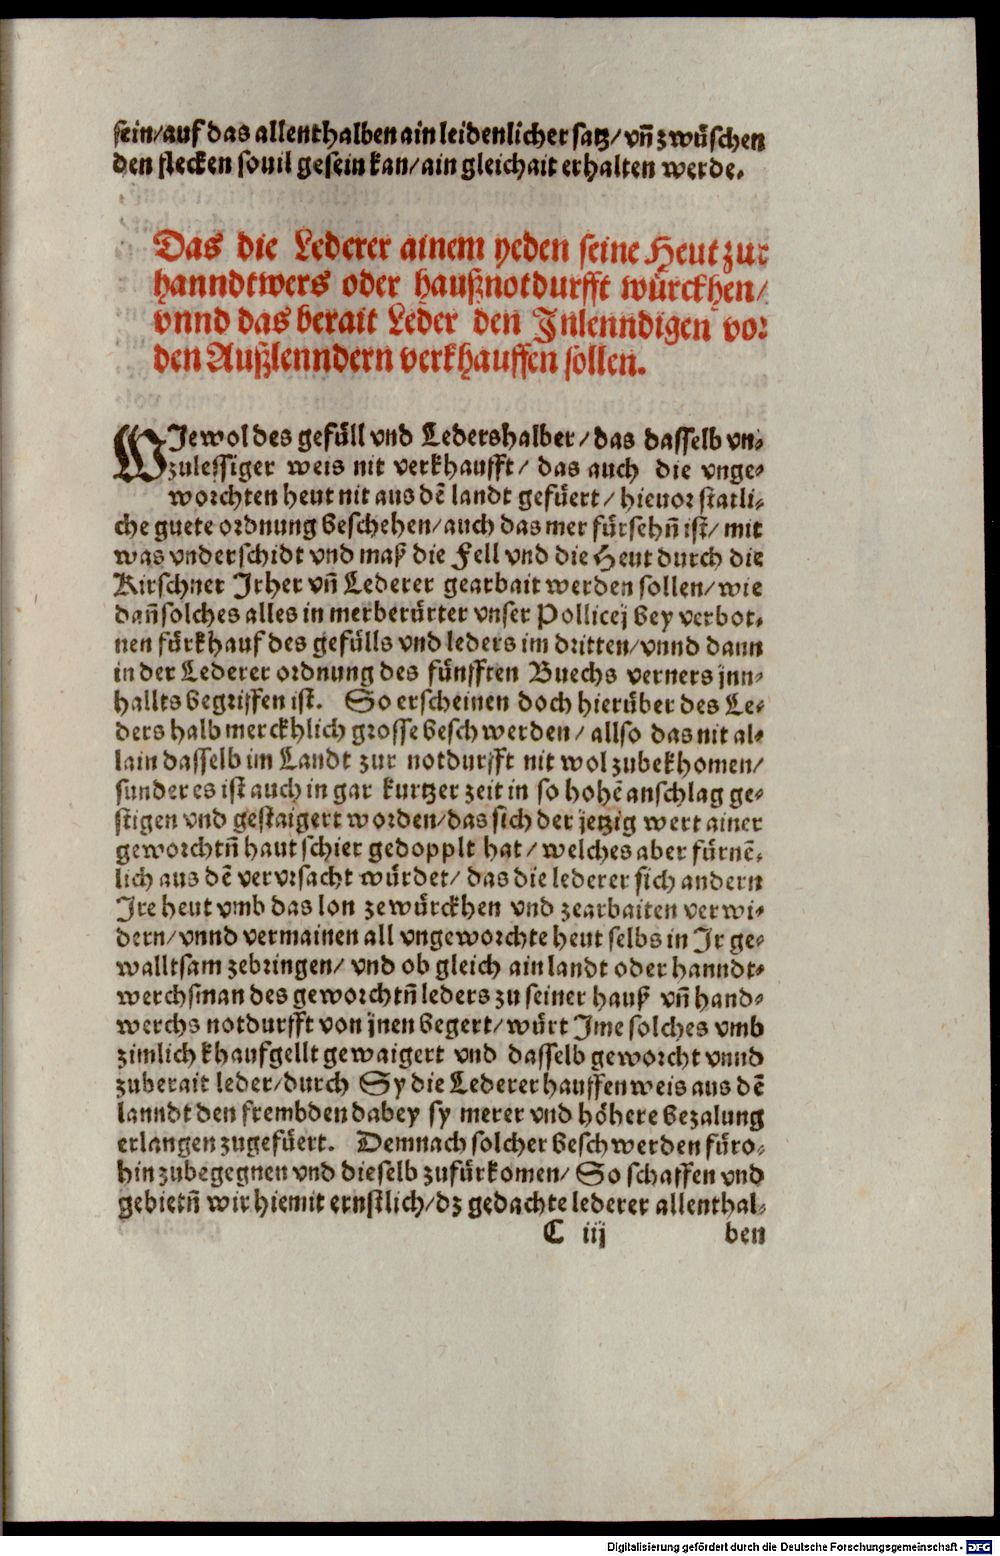 sein/auf das allenthalben ain leidenlicher satz/vñ zwüschen
den flecken souil gesein kan/ain gleichait erhalten werde.
Das die Lederer ainem yeden seine Heut zur
hanndtwers oder haußnotdurfft würckhen/
vnnd das berait Leder den Inlenndigen vor
den Außlenndern verkhauffen sollen.
WJewol des gefüll vnd Ledershalber/das dasselb vn-
zulessiger weis nit verkhaufft/ das auch die vnge-
worchten heut nit aus dē landt gefüert/hieuor statli-
che guete ordnung beschehen/auch das mer fürsehñ ist/mit
was vnderschidt vnd maß die Fell vnd die Heut durch die
Kirschner Jrher vñ Lederer gearbait werden sollen/wie
dañ solches alles in merberürter vnser Pollicej bey verbot-
nen fürkhauf des gefülls vnd leders im dritten/vnnd dann
in der Lederer ordnung des fünfften Buechs verners jnn-
hallts begriffen ist. So erscheinen doch hierüber des Le-
ders halb merckhlich grosse beschwerden/allso das nit al-
lain dasselb im Landt zur notdurfft nit wol zubekhomen/
sunder es ist auch in gar kurtzer zeit in so hohē anschlag ge-
stigen vnd gestaigert worden/das sich der jetzig wert ainer
geworchtñ haut schier gedopplt hat/welches aber fürnē-
lich aus dē vervrsacht würdet/das die lederer sich andern
Jre heut vmb das lon zewürckhen vnd zearbaiten verwi-
dern/vnnd vermainen all vngeworchte heut selbs in Jr ge-
walltsam zebringen/ vnd ob gleich ain landt oder hanndt-
werchsman des geworchtñ leders zu seiner hauß vñ hand-
werchs notdurfft von jnen begert/würt Jme solches vmb
zimlich khaufgellt gewaigert vnd dasselb geworcht vnnd
zuberait leder/durch Sy die Lederer hauffenweis aus dē
lanndt den frembden dabey sy merer vnd höhere bezalung
erlangen zugefüert. Demnach solcher beschwerden füro-
hin zubegegnen vnd dieselb zufürkomen/So schaffen vnd
gebietñ wir hiemit ernstlich/dz gedachte lederer allenthal-
C iij ben
Digitalisierung gefördert durch die Deutsche Forschungsgemeinschaft - DFG